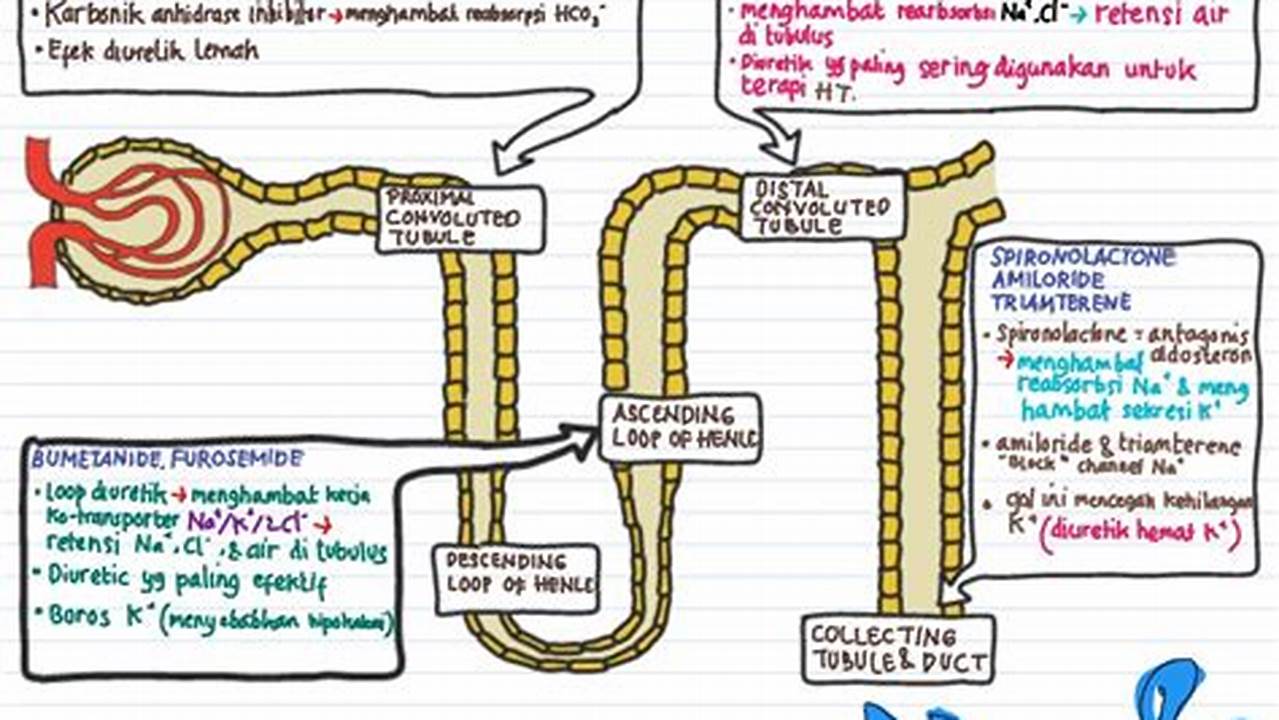 • Karbonik anhidrase inhibitor → menghambat reabsorpsi HCO₃⁻
• Efek diuretik lemah
• menghambat rearbsorbsi Na⁺.Cl⁻ → retensi air
di tubulus
• Diuretik yg paling sering digunakan untuk
terapi HT.
PROXIMAL
CONVOLUTED
TUBULE
DISTAL
CONVOLUTED
TUBULE
SPIRONOLACTONE
AMILORIDE
TRIAMTERENE
• Spironolactone = antagonis
aldosteron
→ menghambat
reabsorbsi Na⁺ & meng
hambat sekresi K⁺
• amiloride & triamterene
"Block" channel Na⁺
• gol ini mencegah kehilangan
K⁺ (diuretik hemat K⁺)
ASCENDING
LOOP OF HENLE
BUMETANIDE, FUROSEMIDE
• Loop diuretik → menghambat kerja
Ko-transporter Na⁺/K⁺/2Cl⁻ →
retensi Na⁺, Cl⁻, & air di tubulus
• Diuretic yg paling efektif
• Boros K⁺ (menyebabkan hipokalemi)
DESCENDING
LOOP OF HENLE
COLLECTING
TUBULE & DUCT